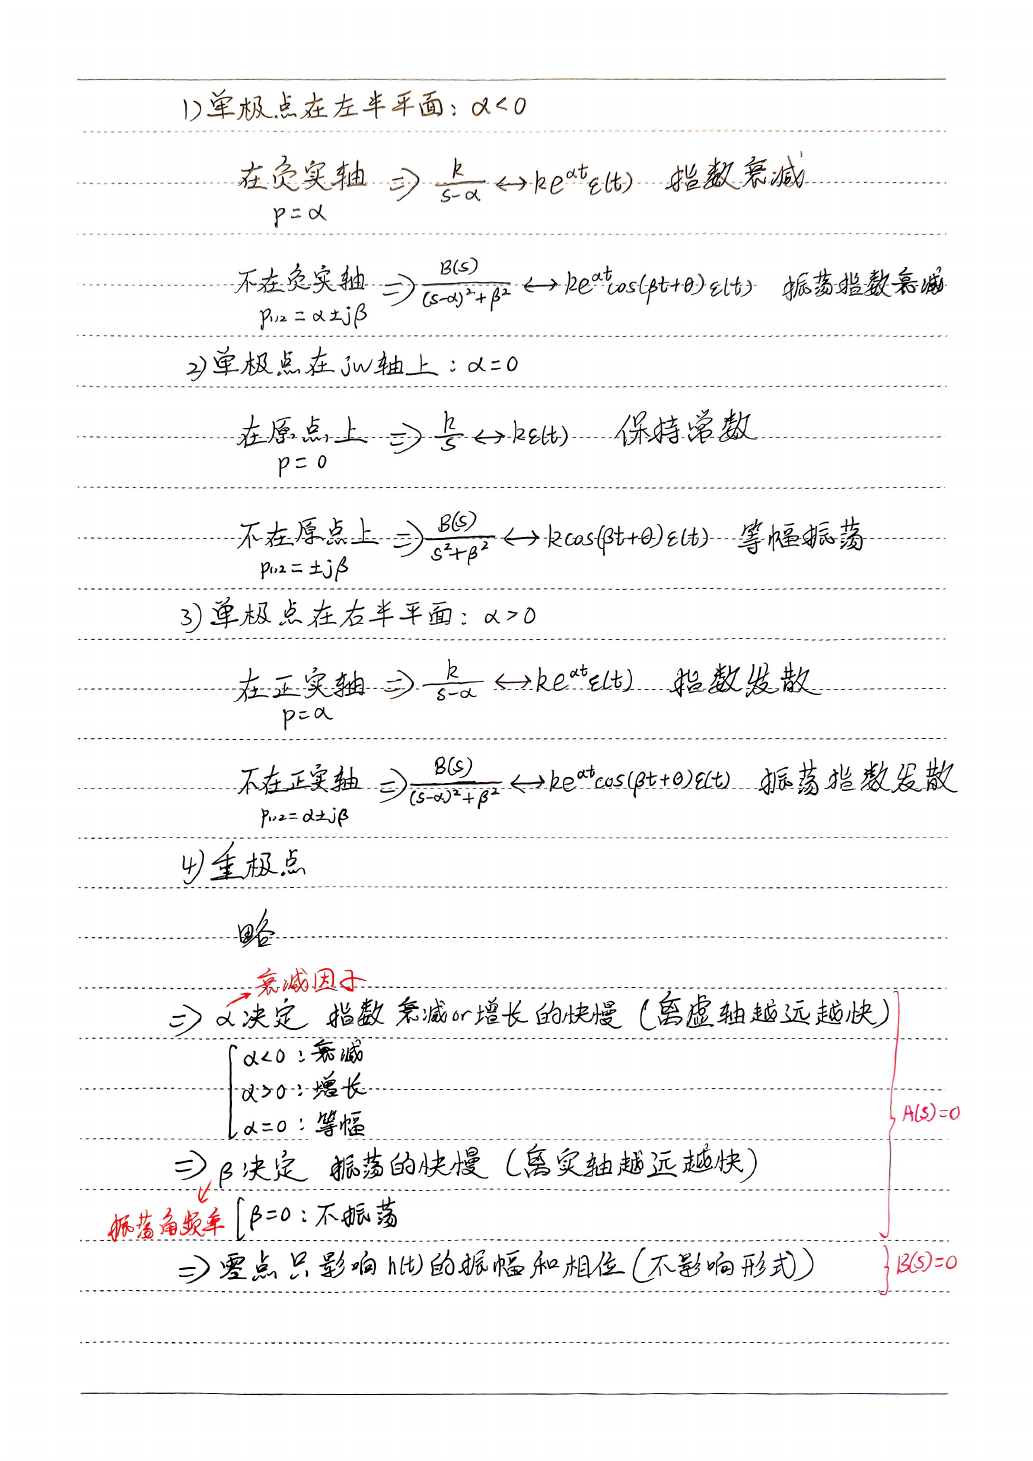 1) 单极点在左半平面: α<0
在负实轴 ⇒ k/(s-α) ↔ ke^{αt}ε(t) 指数衰减
p=α
不在负实轴 ⇒ B(s)/((s-α)²+β²) ↔ ke^{αt}cos(βt+θ)ε(t) 振荡指数衰减
p₁,₂=α±jβ
2) 单极点在jw轴上: α=0
在原点上 ⇒ k/s ↔ kε(t) 保持常数
p=0
不在原点上 ⇒ B(s)/(s²+β²) ↔ kcos(βt+θ)ε(t) 等幅振荡
p₁,₂=±jβ
3) 单极点在右半平面: α>0
在正实轴 ⇒ k/(s-α) ↔ ke^{αt}ε(t) 指数发散
p=α
不在正实轴 ⇒ B(s)/((s-α)²+β²) ↔ ke^{αt}cos(βt+θ)ε(t) 振荡指数发散
p₁,₂=α±jβ
4) 重极点
略
衰减因子
⇒ α决定 指数衰减or增长的快慢 (离虚轴越远越快)
α<0: 衰减
α>0: 增长
α=0: 等幅
A(s)=0
⇒ β决定 振荡的快慢 (离实轴越远越快)
振荡角频率 β=0: 不振荡
⇒ 零点只影响h(t)的振幅和相位 (不影响形式) B(s)=0